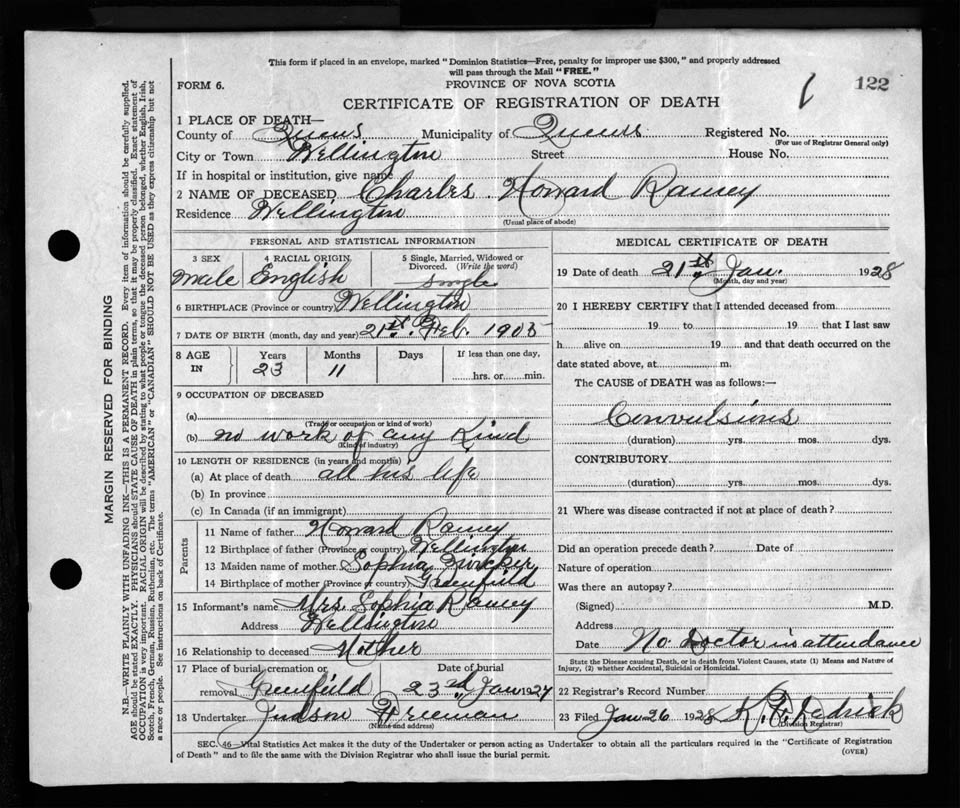 This form if placed in an envelope, marked "Dominion Statistics—Free, penalty for improper use $300," and properly addressed
will pass through the Mail "FREE."
FORM 6.
PROVINCE OF NOVA SCOTIA
122
CERTIFICATE OF REGISTRATION OF DEATH
1 PLACE OF DEATH—
County of Queens Municipality of Queens Registered No.
(For use of Registrar General only)
City or Town Wellington Street House No.
If in hospital or institution, give name
2 NAME OF DECEASED Charles Howard Ramey
Residence Wellington
(Usual place of abode)
PERSONAL AND STATISTICAL INFORMATION
3 SEX 4 RACIAL ORIGIN 5 Single, Married, Widowed or
Divorced. (Write the word)
male English Single
6 BIRTHPLACE (Province or country) Wellington
7 DATE OF BIRTH (month, day and year) 21st Feb. 1905
8 AGE IN Years Months Days If less than one day,
23 11 hrs. or min.
9 OCCUPATION OF DECEASED
(a)
(Trade or occupation or kind of work)
(b) no work of any Kind
(Kind of industry)
10 LENGTH OF RESIDENCE (in years and months)
(a) At place of death all his life
(b) In province
(c) In Canada (if an immigrant)
Parents
11 Name of father Howard Ramey
12 Birthplace of father (Province or country) Wellington
13 Maiden name of mother Sophia Zwicker
14 Birthplace of mother (Province or country) Greenfield
15 Informant's name Mrs. Sophia Ramey
Address Wellington
16 Relationship to deceased Mother
17 Place of burial, cremation or Date of burial
removal Greenfield 23rd Jan 1927
18 Undertaker Judson Freeman
(Name and address)
MEDICAL CERTIFICATE OF DEATH
19 Date of death 21st Jan. 1928
(Month, day and year)
20 I HEREBY CERTIFY that I attended deceased from
19 to 19 that I last saw
h alive on 19 and that death occurred on the
date stated above, at m.
The CAUSE of DEATH was as follows:—
Convulsions
(duration) yrs. mos. dys.
CONTRIBUTORY
(duration) yrs. mos. dys.
21 Where was disease contracted if not at place of death?
Did an operation precede death? Date of
Nature of operation
Was there an autopsy?
(Signed) M.D.
Address
Date No Doctor in attendance
State the Disease causing Death, or in death from Violent Causes, state (1) Means and Nature of
Injury, (2) whether Accidental, Suicidal or Homicidal.
22 Registrar's Record Number
23 Filed Jan 26 1928 Dedrick
(Division Registrar)
SEC. 46—Vital Statistics Act makes it the duty of the Undertaker or person acting as Undertaker to obtain all the particulars required in the "Certificate of Registration
of Death" and to file the same with the Division Registrar who shall issue the burial permit.
(OVER)
MARGIN RESERVED FOR BINDING
N.B.—WRITE PLAINLY WITH UNFADING INK—THIS IS A PERMANENT RECORD. Every item of information should be carefully supplied.
AGE should be stated EXACTLY. PHYSICIANS should STATE CAUSE OF DEATH in plain terms, so that it may be properly classified. Exact statement of
OCCUPATION is very important. RACIAL ORIGIN will be described by stating to what people or tongue the deceased person belonged, whether English, Irish,
Scotch, French, German, Russian, Ruthenian, etc. The terms "AMERICAN" or "CANADIAN" SHOULD NOT BE USED as they express citizenship but not
a race or people. See instructions on back of Certificate.